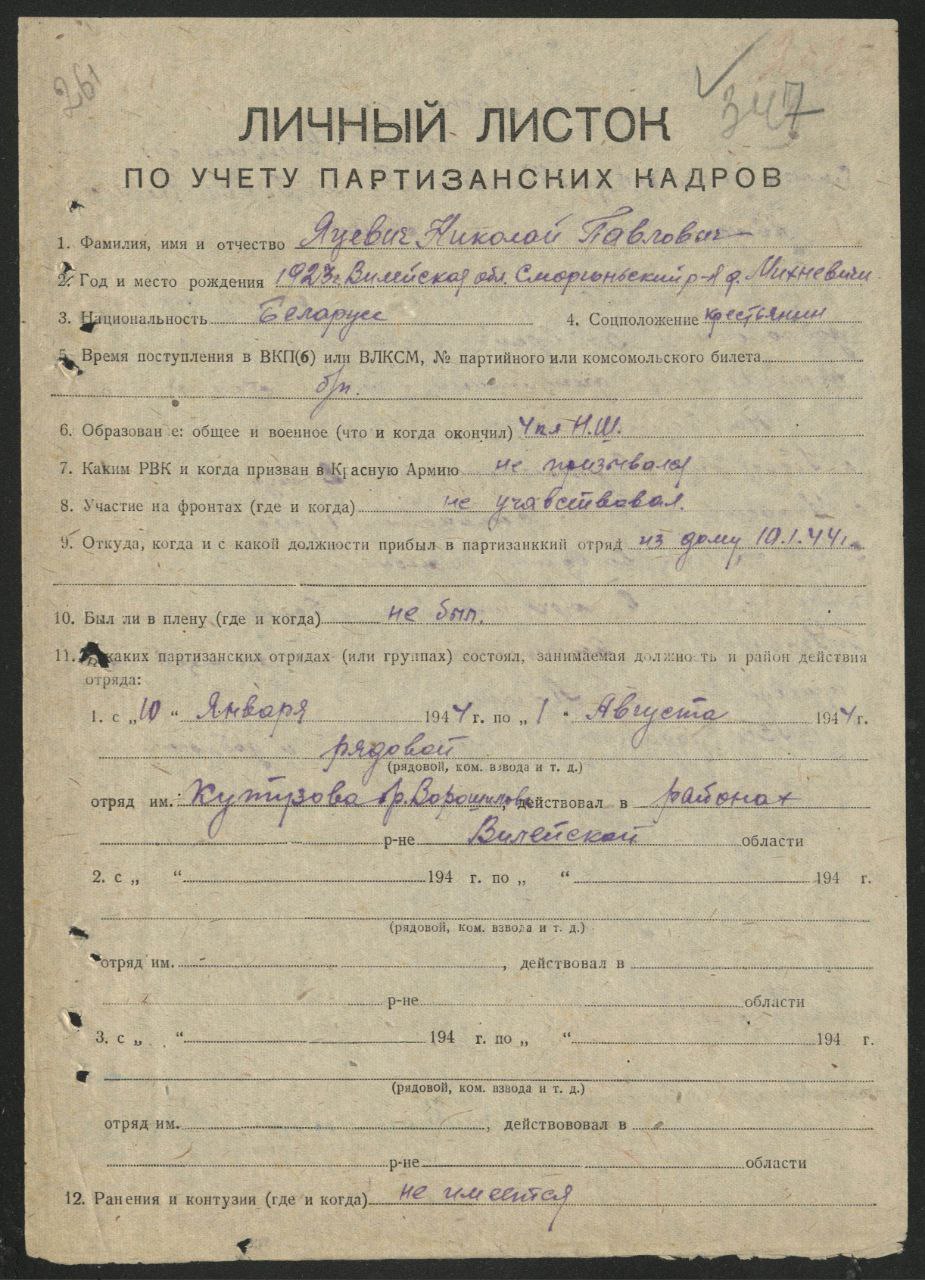 347
ЛИЧНЫЙ ЛИСТОК
ПО УЧЕТУ ПАРТИЗАНСКИХ КАДРОВ
1. Фамилия, имя и отчество Яцевич Николай Павлович
2. Год и место рождения 1923г. Вилейская обл. Сморгоньский р-н д. Михневичи
3. Национальность Беларусс 4. Соцположение крестьянин
5. Время поступления в ВКП(б) или ВЛКСМ, № партийного или комсомольского билета
б/п.
6. Образован е: общее и военное (что и когда окончил) 4 кл Н.Ш.
7. Каким РВК и когда призван в Красную Армию не призывался
8. Участие на фронтах (где и когда) не учавствовал.
9. Откуда, когда и с какой должности прибыл в партизанккий отряд из дому 10.1.44г.
10. Был ли в плену (где и когда) не был.
11. В каких партизанских отрядах (или группах) состоял, занимаемая должность и район действия
отряда:
1. с „10“ Января 1944 г. по „1“ Августа 1944 г.
рядовой
(рядовой, ком. взвода и т. д.)
отряд им. Кутузова бр. Ворошилова, действовал в районах
р-не Вилейской области
2. с „ “ 194 г. по „ “ 194 г.
(рядовой, ком. взвода и т. д.)
отряд им. , действовал в
р-не области
3. с „ “ 194 г. по „ “ 194 г.
(рядовой, ком. взвода и т. д.)
отряд им. , действововал в
р-не области
12. Ранения и контузии (где и когда) не имеется